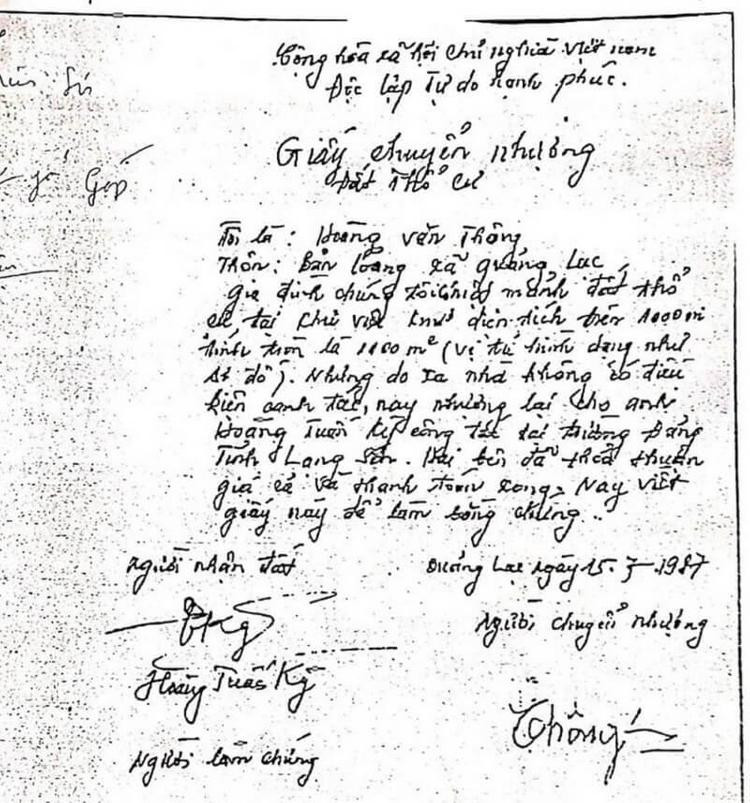 Cộng hòa xã hội chủ nghĩa Việt nam
Độc lập Tự do hạnh phúc.
Giấy chuyển nhượng
Đất thổ cư
Góp
Tôi là : Hoàng văn Thông
Thôn: Bản Loỏng xã Quảng Lạc
gia đình chúng tôi có mảnh đất thổ
cư, tại khu vực diện tích trên
hình tròn là 1100 m² (vị trí hình dạng như
sơ đồ). Nhưng do xa nhà không có điều
kiện canh tác, nay nhượng lại cho anh
Hoàng Tuấn Kỳ công tác tại trường Đảng
Tỉnh Lạng Sơn. Hai bên đã thoả thuận
giá cả và thanh toán xong, Nay viết
giấy này để làm bằng chứng ..
Người nhận đất
Quảng Lạc ngày 15. 7 - 1987
Người chuyển nhượng
Hoàng Tuấn Kỳ
Thông
Người làm chứng